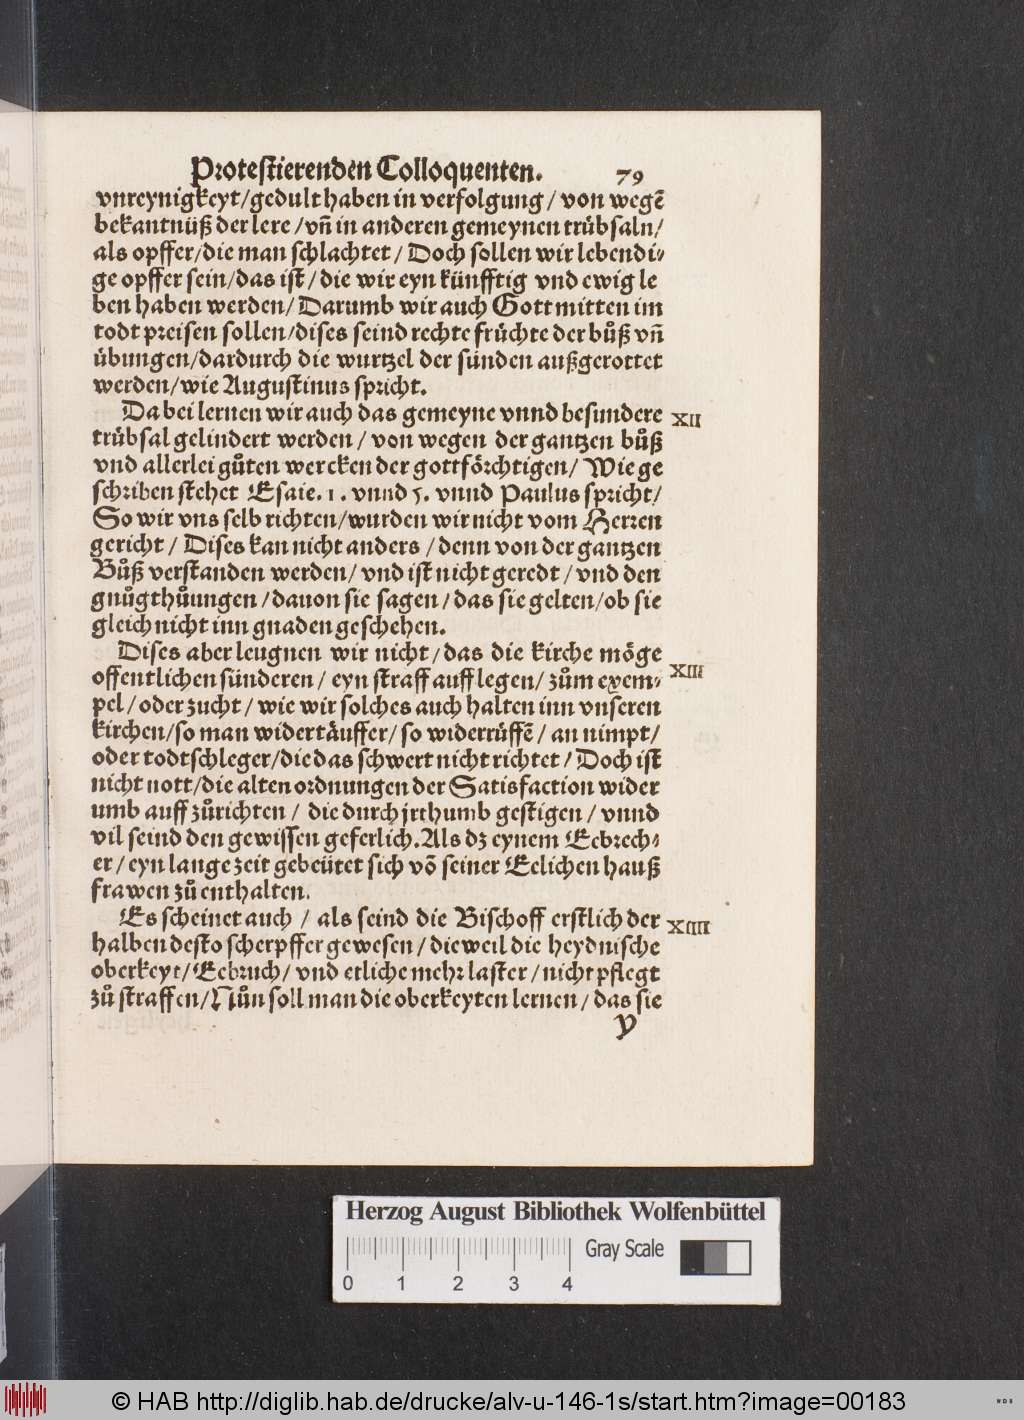 Protestierenden Colloquenten. 79
vnreynigkeyt/gedult haben in verfolgung/ von wegē
bekantnüß der lere/vñ in anderen gemeynen trübsaln/
als opffer/die man schlachtet/ Doch sollen wir lebendi⸗
ge opffer sein/das ist/die wir eyn künfftig vnd ewig le
ben haben werden/ Darumb wir auch Gott mitten im
todt preisen sollen/dises seind rechte früchte der bůß vñ
übungen/dardurch die wurtzel der sünden außgerottet
werden/wie Augustinus spricht.
Da bei lernen wir auch das gemeyne vnnd besundere XII
trübsal gelindert werden/ von wegen der gantzen bůß
vnd allerlei gůten wercken der gottförchtigen/ Wie ge
schriben stehet Esaie. 1. vnnd 5. vnnd Paulus spricht/
So wir vns selb richten/wurden wir nicht vom Herren
gericht/ Dises kan nicht anders/denn von der gantzen
Bůß verstanden werden/ vnd ist nicht geredt/vnd den
gnůgthůungen/dauon sie sagen/das sie gelten/ob sie
gleich nicht inn gnaden geschehen.
Dises aber leugnen wir nicht/das die kirche möge XIII
offentlichen sünderen/ eyn straff auff legen/ zům exem⸗
pel/oder zucht/ wie wir solches auch halten inn vnseren
kirchen/so man widertäuffer/so widerrüffē/ an nimpt/
oder todtschleger/die das schwert nicht richtet/ Doch ist
nicht nott/die alten ordnungen der Satisfaction wider
umb auff zůrichten/ die durch jrthumb gestigen/ vnnd
vil seind den gewissen geferlich. Als dz eynem Eebrech⸗
er/eyn lange zeit gebeütet sich võ seiner Eelichen hauß
frawen zů enthalten.
Es scheinet auch/ als seind die Bischoff erstlich der XIIII
halben desto scherpffer gewesen/dieweil die heydnische
oberkeyt/Eebruch/ vnd etliche mehr laster/nicht pflegt
zů straffen/Nůn soll man die oberkeyten lernen/das sie
y
Herzog August Bibliothek Wolfenbüttel
Gray Scale
0 1 2 3 4
© HAB http://diglib.hab.de/drucke/alv-u-146-1s/start.htm?image=00183